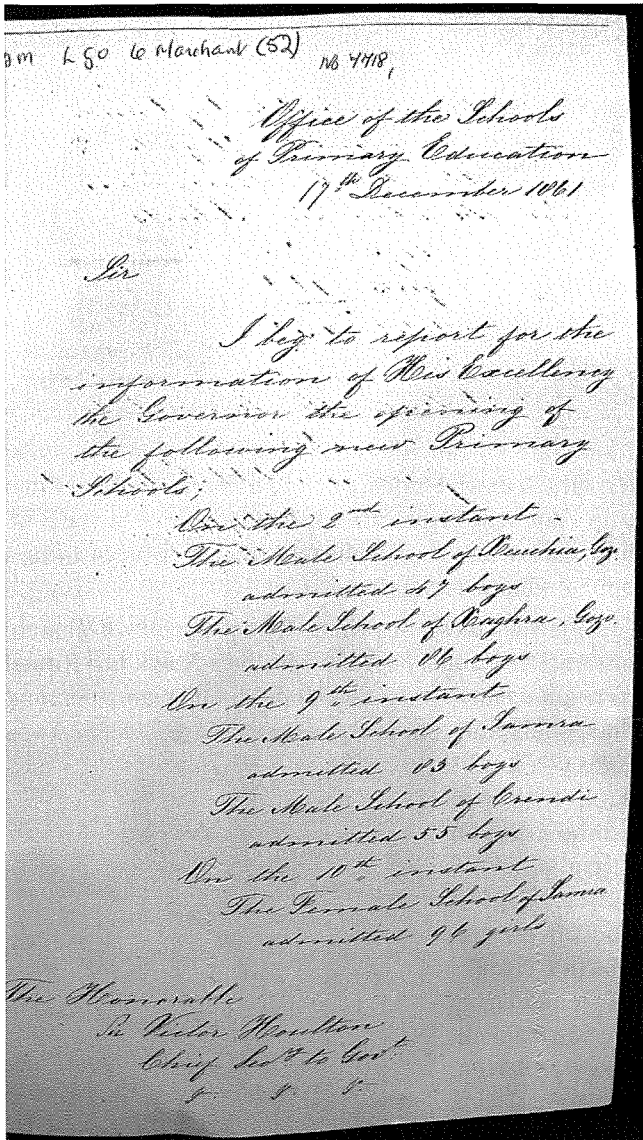 L 50 le Marchant (52) No 4718,
Office of the Schools
of Primary Education
17th December 1861
Sir
I beg to report for the
information of His Excellency
the Governor the opening of
the following new Primary
Schools;
On the 2nd instant
The Male School of Xeuchia, Gozo
admitted 47 boys
The Male School of Xaghra, Gozo.
admitted 86 boys
On the 9th instant
The Male School of Samra
admitted 83 boys
The Male School of Crendi
admitted 55 boys
On the 10th instant
The Female School of Samra
admitted 96 girls
The Honorable
Sir Victor Houlton
Chief Secy to Govt